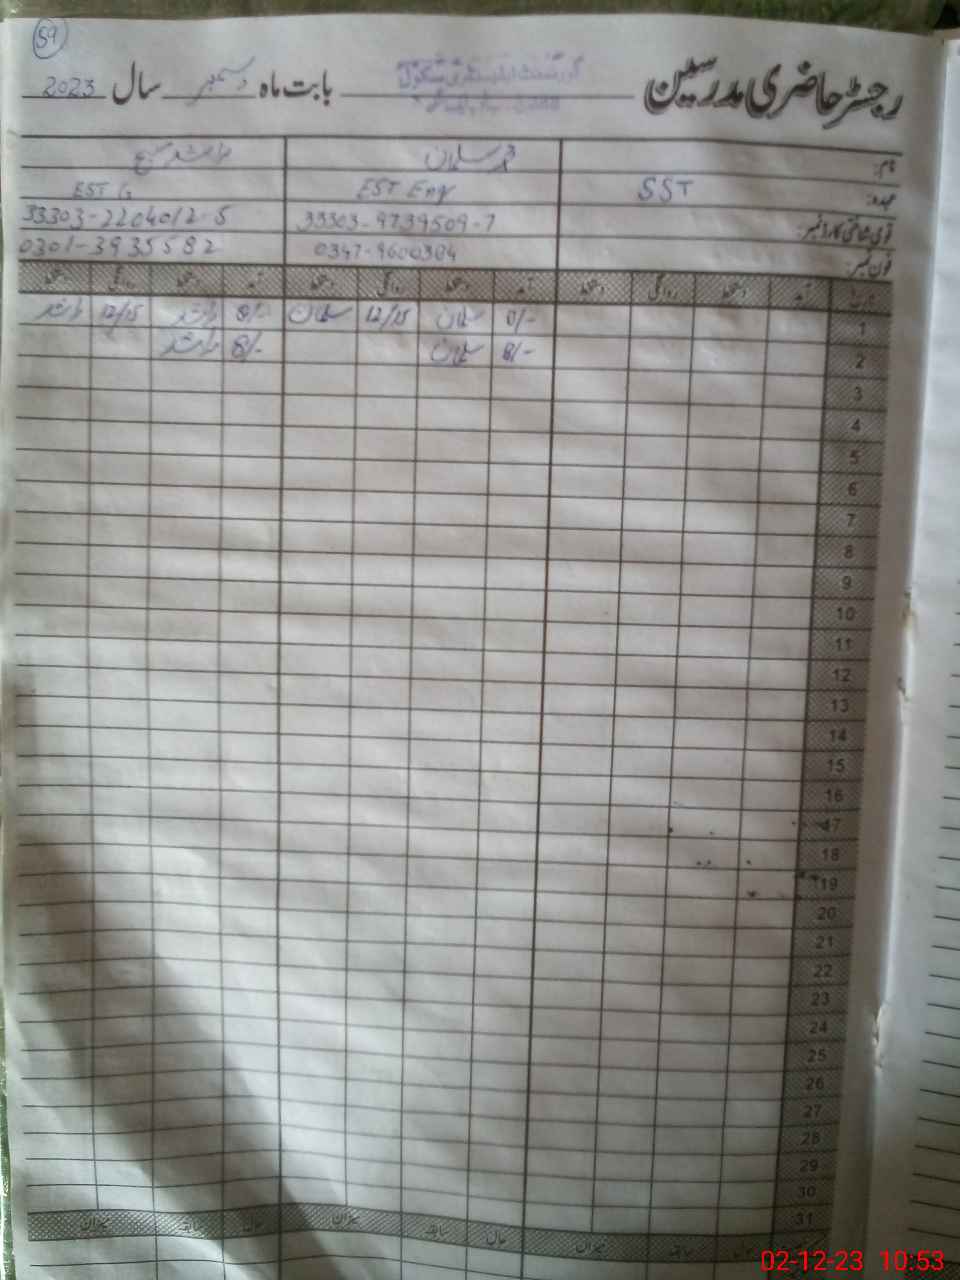 59
رجسٹر حاضری مدرسین گورنمنٹ ایلیمنٹری سکول بابت ماہ دسمبر سال 2023
نام: محمد سلمان راشد مسیح
عہدہ: SST EST Eng EST G
قومی شناختی کارڈ نمبر: 33303-9739509-7 33303-2204012-5
فون نمبر: 0347-9600384 0301-3935582
تاریخ آمد دستخط روانگی دستخط آمد دستخط روانگی دستخط آمد دستخط روانگی دستخط
1 8/- سلمان 12/15 سلمان 8/- راشد 12/15 راشد
2 8/- سلمان 8/- راشد
3
4
5
6
7
8
9
10
11
12
13
14
15
16
17
18
19
20
21
22
23
24
25
26
27
28
29
30
31
سابقہ میزان حال سابقہ میزان حال سابقہ میزان
02-12-23 10:53